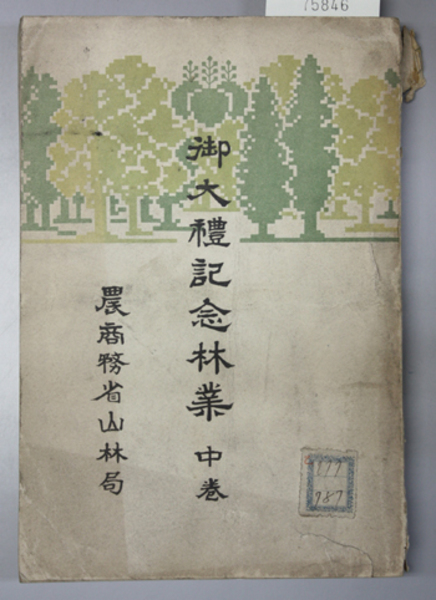 75846
御大禮記念林業 中巻
農商務省山林局
177
987